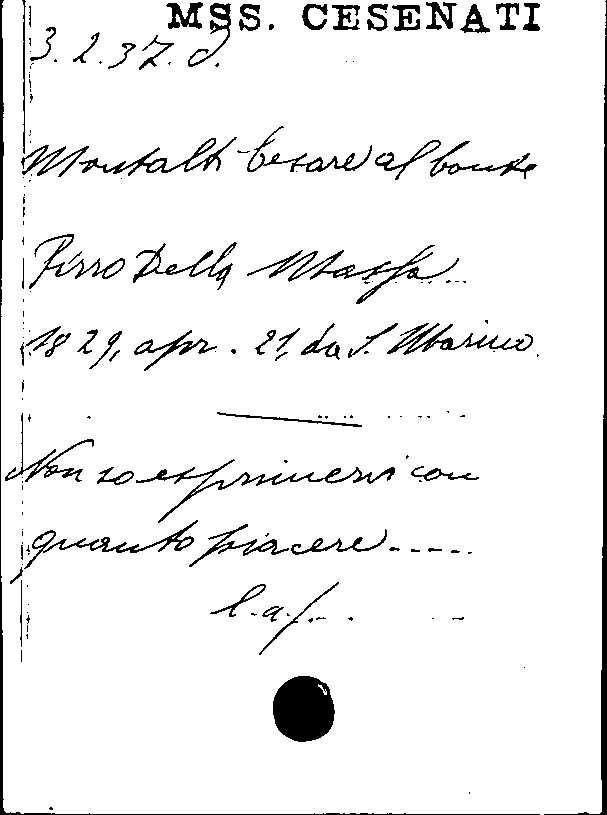 MSS. CESENATI
3.2.37.d.
Montalti Cesare al Conte
Pirro Della Massa
1829, apr. 21, da S. Marino.
Non so esprimervi con
quanto piacere.....
l.a.f.